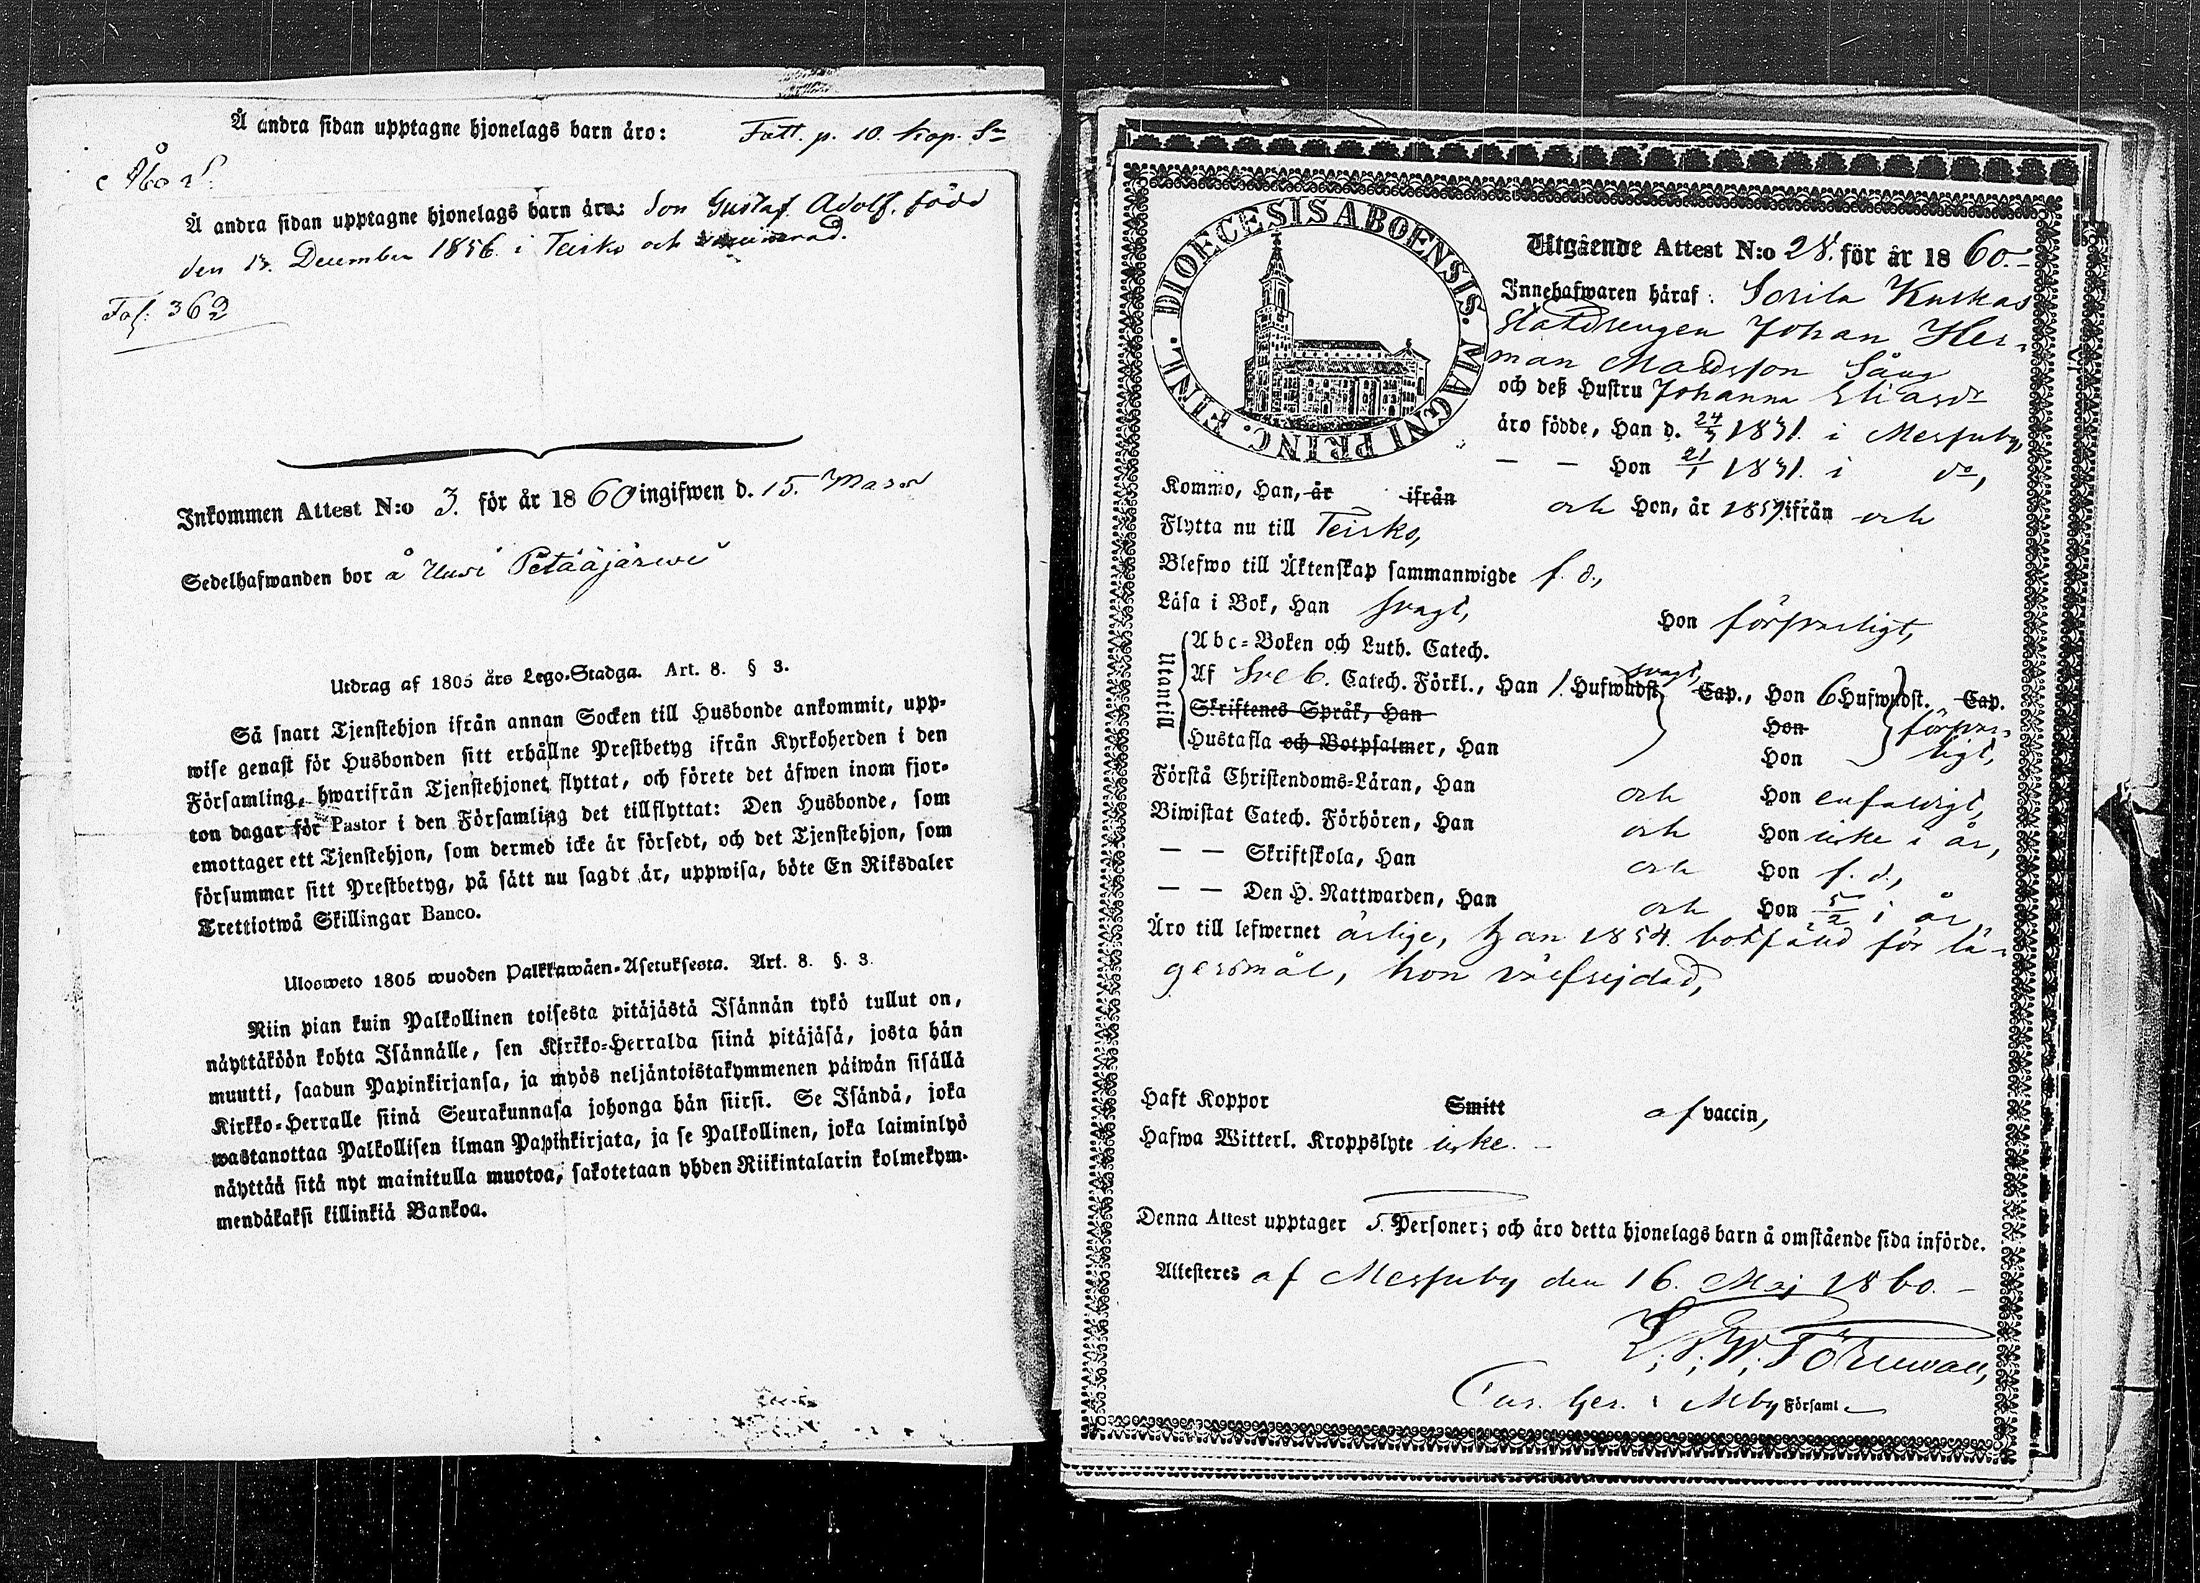 Å andra sidan upptagne hjonelags barn äro: Fatt. p. 10. kop. Sr
Å andra sidan upptagne hjonelags barn äro: Son Gustaf Adolf, född
den 13. December 1856 i Teisko och vaccinerad.
Fol. 362
Inkommen Attest N:o 3. för år 1860 ingifwen d. 15. Mars
Sedelhafwanden bor å Uusi Petääjärwi
Utdrag af 1805 års Lego-Stadga. Art. 8. § 3.
Så snart Tjenstehjon ifrån annan Socken till Husbonde ankommit, upp-
wise genast för Husbonden sitt erhållne Prestbetyg ifrån Kyrkoherden i den
Församling, hwarifrån Tjenstehjonet flyttat, och förete det äfwen inom fjor-
ton dagar för Pastor i den Församling det tillflyttat: Den Husbonde, som
emottager ett Tjenstehjon, som dermed icke är försedt, och det Tjenstehjon, som
försummar sitt Prestbetyg, på sätt nu sagdt är, uppwisa, böte En Riksdaler
Trettiotwå Skillingar Banco.
Ulosweto 1805 wuoden Palkkawäen-Asetuksesta. Art. 8. §. 3.
Niin pian kuin Palkollinen toisesta pitäjästä Isännän tykö tullut on,
näyttäköön kohta Isännälle, sen Kirkko-Herralda siinä pitäjäsä, josta hän
muutti, saadun Papinkirjansa, ja myös neljäntoistakymmenen päiwän sisällä
Kirkko-Herralle siinä Seurakunnasa johonga hän siirsi. Se Isändä, joka
wastanottaa Palkollisen ilman Papinkirjata, ja se Palkollinen, joka laiminlyö
näyttää sitä nyt mainitulla muotoa, sakotetaan yhden Riikintalarin kolmekym-
mendäkaksi killinkiä Bankoa.
DIOECESIS ABOENSIS. MAGNI PRINC. FINL.
Utgående Attest N:o 28. för år 1860.
Innehafwaren häraf: Sorila Kuskas
Statdrengen Johan Her-
man Mattsson Sång
och deß Hustru Johanna Eliasdr
äro födde, Han d. 24/5 1831. i Messuby,
— — Hon 21/1 1831. i do,
Kommo, Han, år ifrån och Hon, år 1857 ifrån och
Flytta nu till Teisko,
Blefwo till Äktenskap sammanwigde f. d.,
Läsa i Bok, Han svagt, Hon försvarligt,
Utantill
Abc-Boken och Luth. Catech.
Af Sve b. Catech. Förkl., Han 1. Hufwudst. svagt, Cap., Hon 6 Hufwudst. Cap.
Skriftenes Språk, Han Hon försvar-
Hustafla och Botpsalmer, Han Hon ligt,
Förstå Christendoms-Läran, Han och Hon enfaldigt,
Biwistat Catech. Förhören, Han och Hon icke i år,
— — Skriftskola, Han och Hon f. d.,
— — Den H. Nattwarden, Han och Hon 5/2 i år
Äro till lefwernet ärlige, han 1854. bokfäld för lä-
gersmål, hon välfrejdad,
Haft Koppor Smitt af vaccin,
Hafwa Witterl. Kroppslyte icke.
Denna Attest upptager 3. Personer; och äro detta hjonelags barn å omstående sida införde.
Attesteres af Messuby den 16. Maj 1860.
Församl